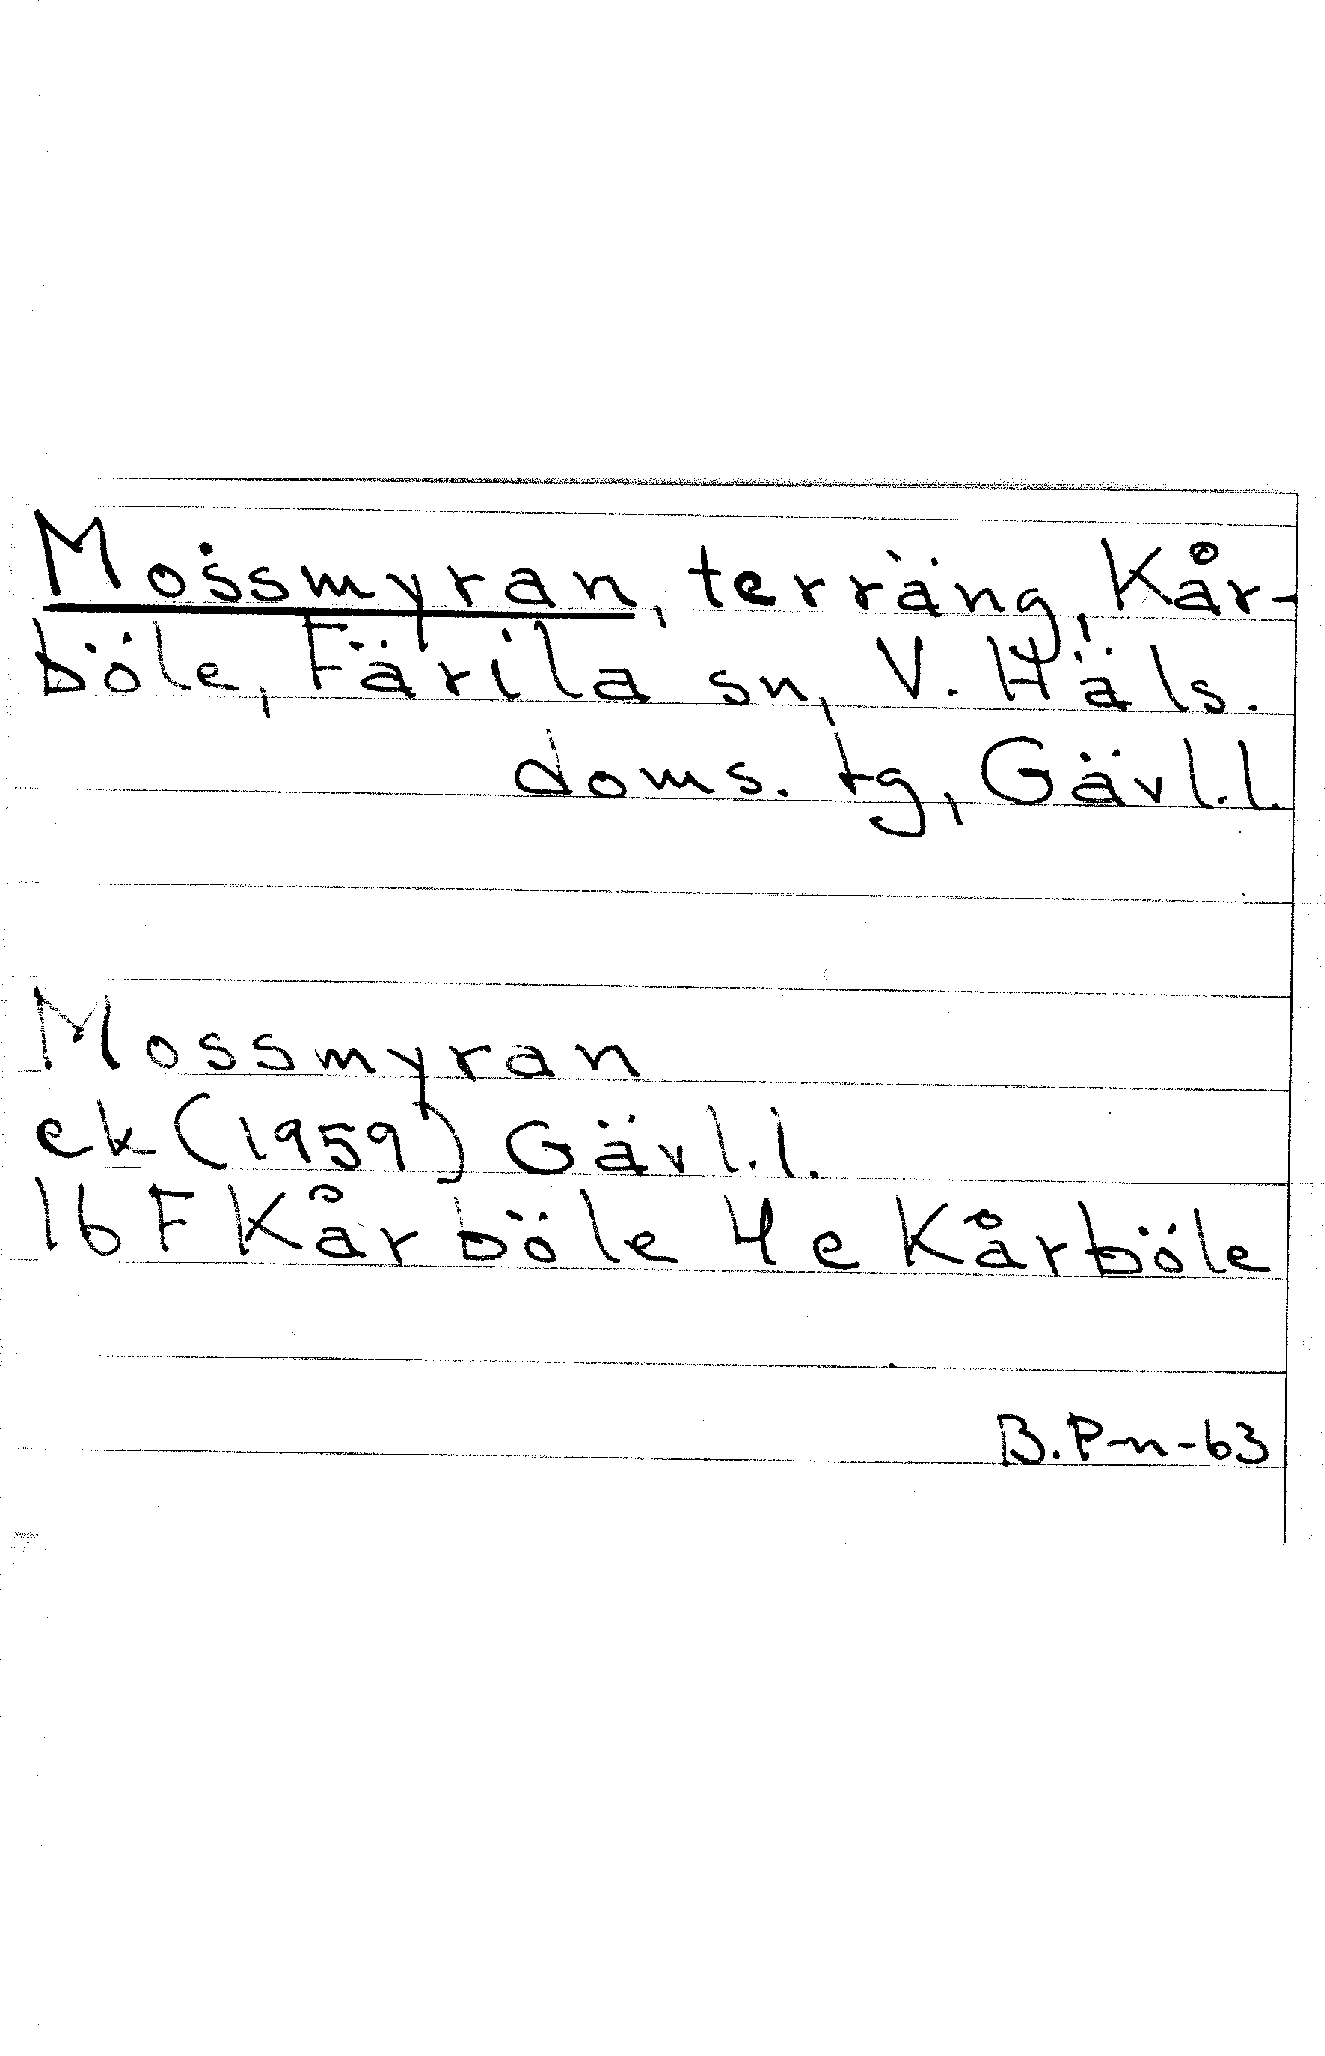 Mossmyran, terräng, Kår-
böle, Färila sn, V. Häls.
doms. tg, Gävl.l.
Mossmyran
ek (1959) Gävl.l.
16 F Kårböle 4 e Kårböle
B.P-n-63